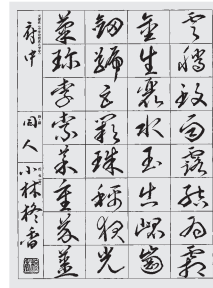 雲騰致雨露結為霜
金生麗水玉出崐崗
劍號巨闕珠稱夜光
菓珎李柰菜重芥薑
府中
國人
小林柊香